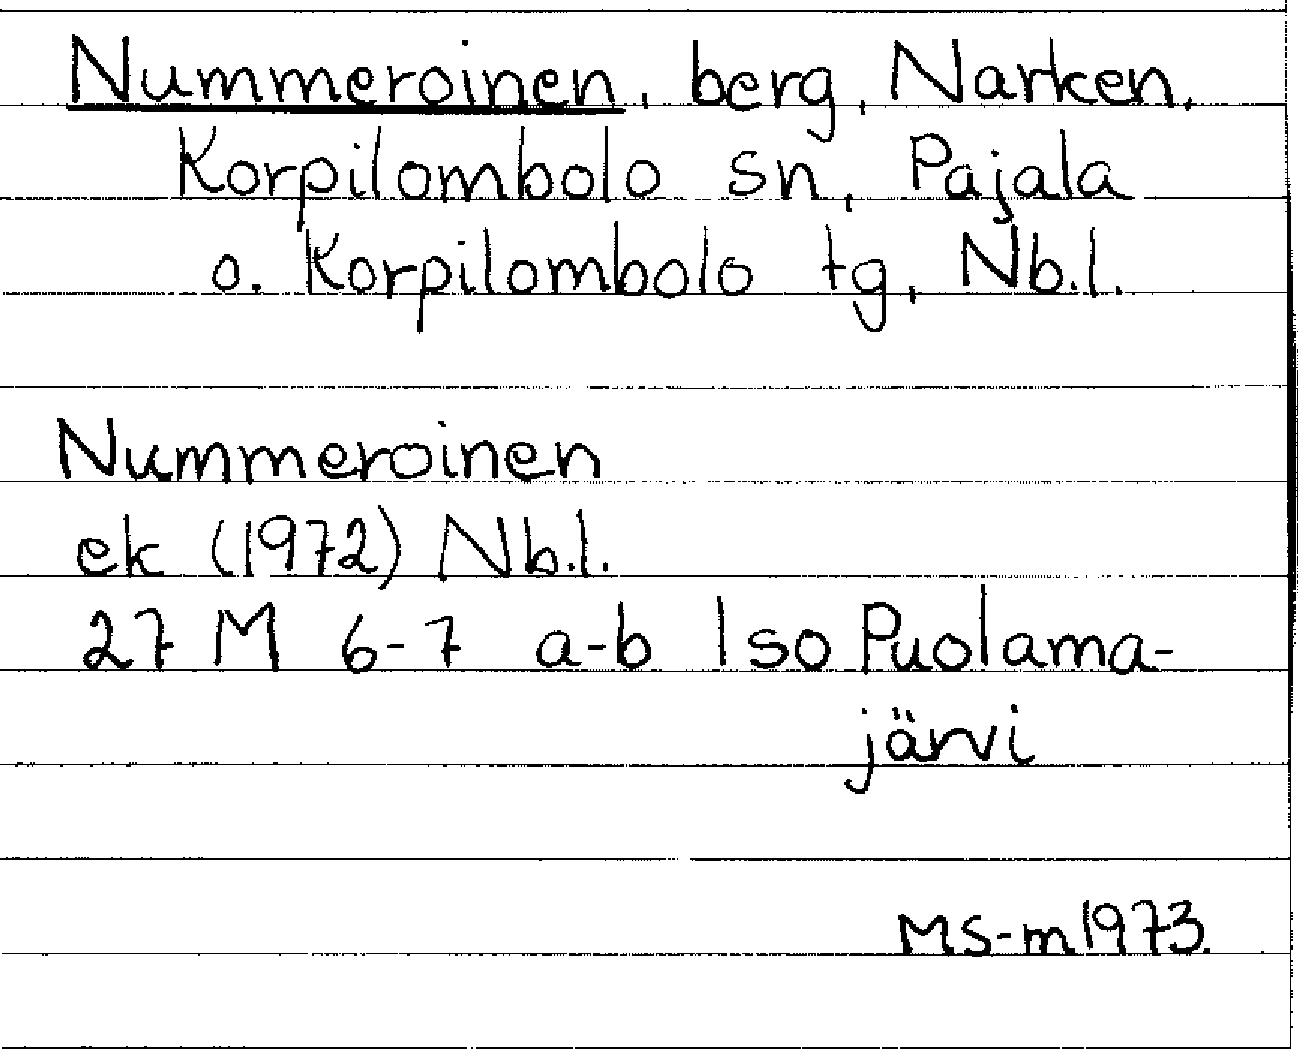 Nummeroinen, berg, Narken,
Korpilombolo sn, Pajala
o. Korpilombolo tg, Nb.l.
Nummeroinen
ek (1972) Nb.l.
27 M 6-7 a-b Iso Puolama-
järvi
MS-m 1973.